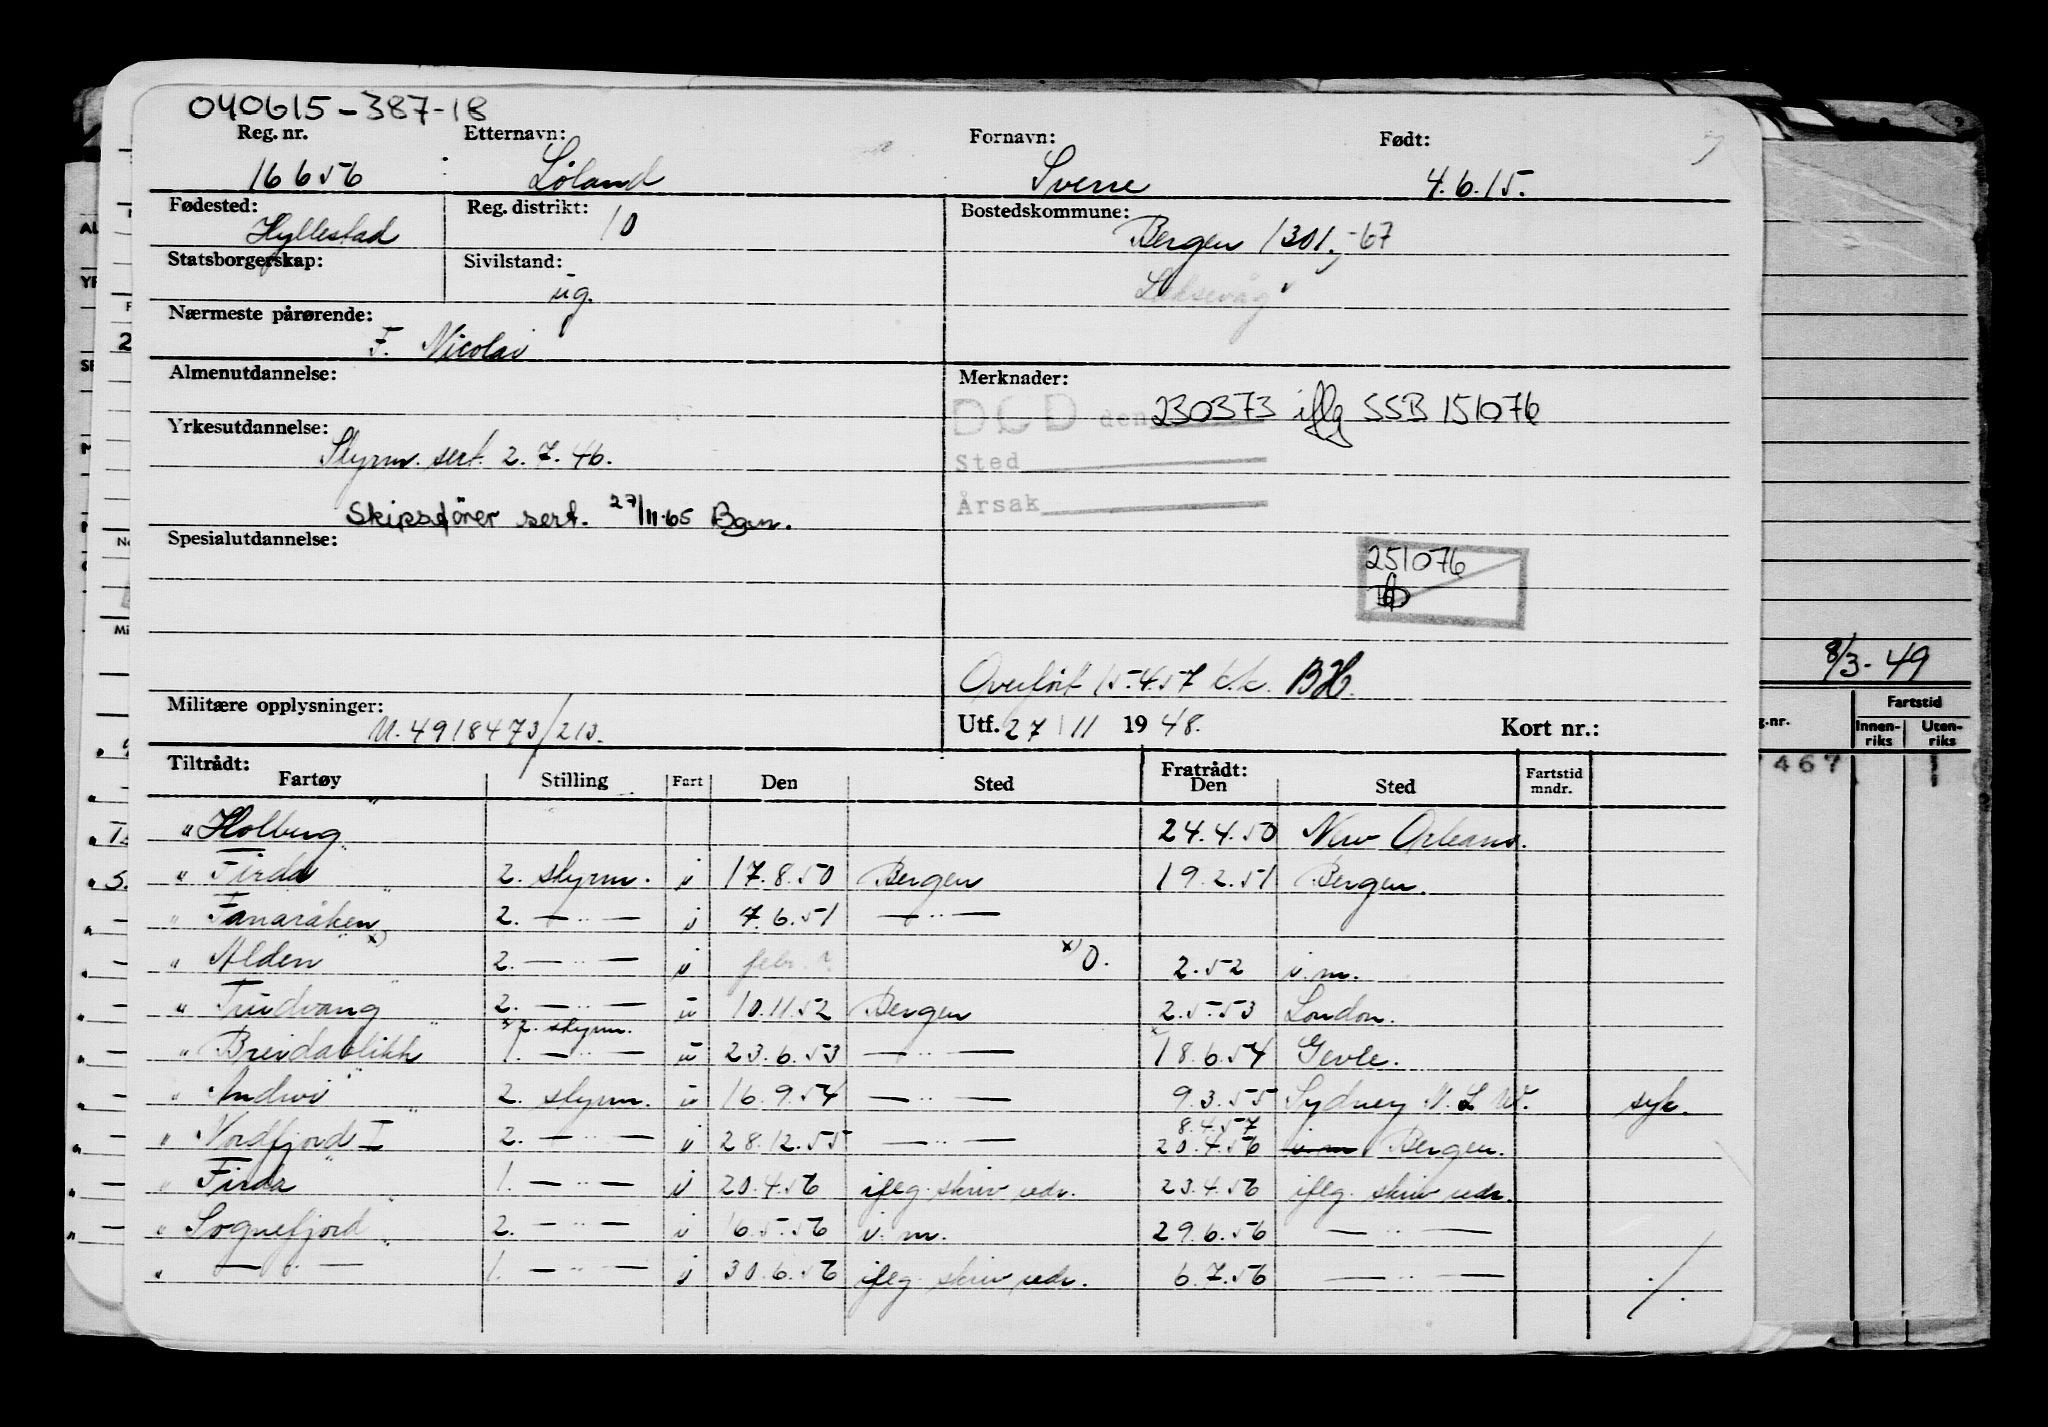 040615-387-18
Reg. nr. Etternavn: Fornavn: Født:
16656 Løland Sverre 4.6.15.
Fødested: Reg. distrikt: Bostedskommune:
Hyllestad 10 Bergen 1301,-67
Statsborgerskap: Sivilstand:
ug. Laksevåg
Nærmeste pårørende:
F. Nicolai
Almenutdannelse: Merknader:
DØD den 230373 iflg SSB 151076
Yrkesutdannelse:
Styrm. sert. 2.7.46. Sted
Årsak
Skipsfører sert. 27/11-65 Bgn.
Spesialutdannelse:
251076
Overført 15.4.57 k.k. BH.
8/3-49
Militære opplysninger:
M. 4918473/213. Utf. 27/11 1948. Kort nr.:
g.nr. Fartstid
Innen-riks Uten-riks
467
Tiltrådt: Fratrådt:
Fartøy Stilling Fart Den Sted Den Sted Fartstid mndr.
"Holberg" 24.4.50 New Orleans.
"Firda" 2. styrm. i 17.8.50 Bergen 19.2.51 Bergen.
"Fanaråken" 2. —..— i 7.6.51 —..—
"Alden" x) 2. —..— i febr. ? x) O. 2.52 i.m.
"Trudvang" 2. —..— u 10.11.52 Bergen 2.5.53 London.
x 2. styrm.
"Breidablikk" 1. —..— u 23.6.53 —..— x 18.6.54 Gevle.
"Andwi" 2. styrm. u 16.9.54 —..— 9.3.55 Sydney N.S.W. syk.
8.4.57
"Nordfjord I" 2. —..— i 28.12.55 —..— 20.4.56 i.m. Bergen.
"Firda" 1. —..— i 20.4.56 iflg. skriv redr. 23.4.56 iflg. skriv redr.
"Sognefjord" 2. —..— i 16.5.56 i.m. 29.6.56 —..—
" —..— 1. —..— i 30.6.56 iflg. skriv redr. 6.7.56 —..— ./.